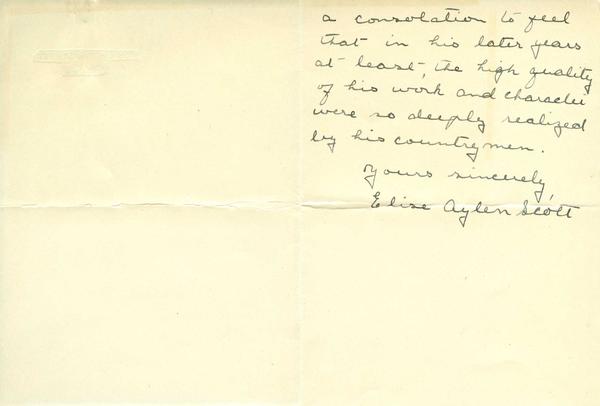 a consolation to feel
that in his later years
at least, the high quality
of his work and character
were so deeply realized
by his countrymen.
Yours sincerely,
Elise Aylen Scott